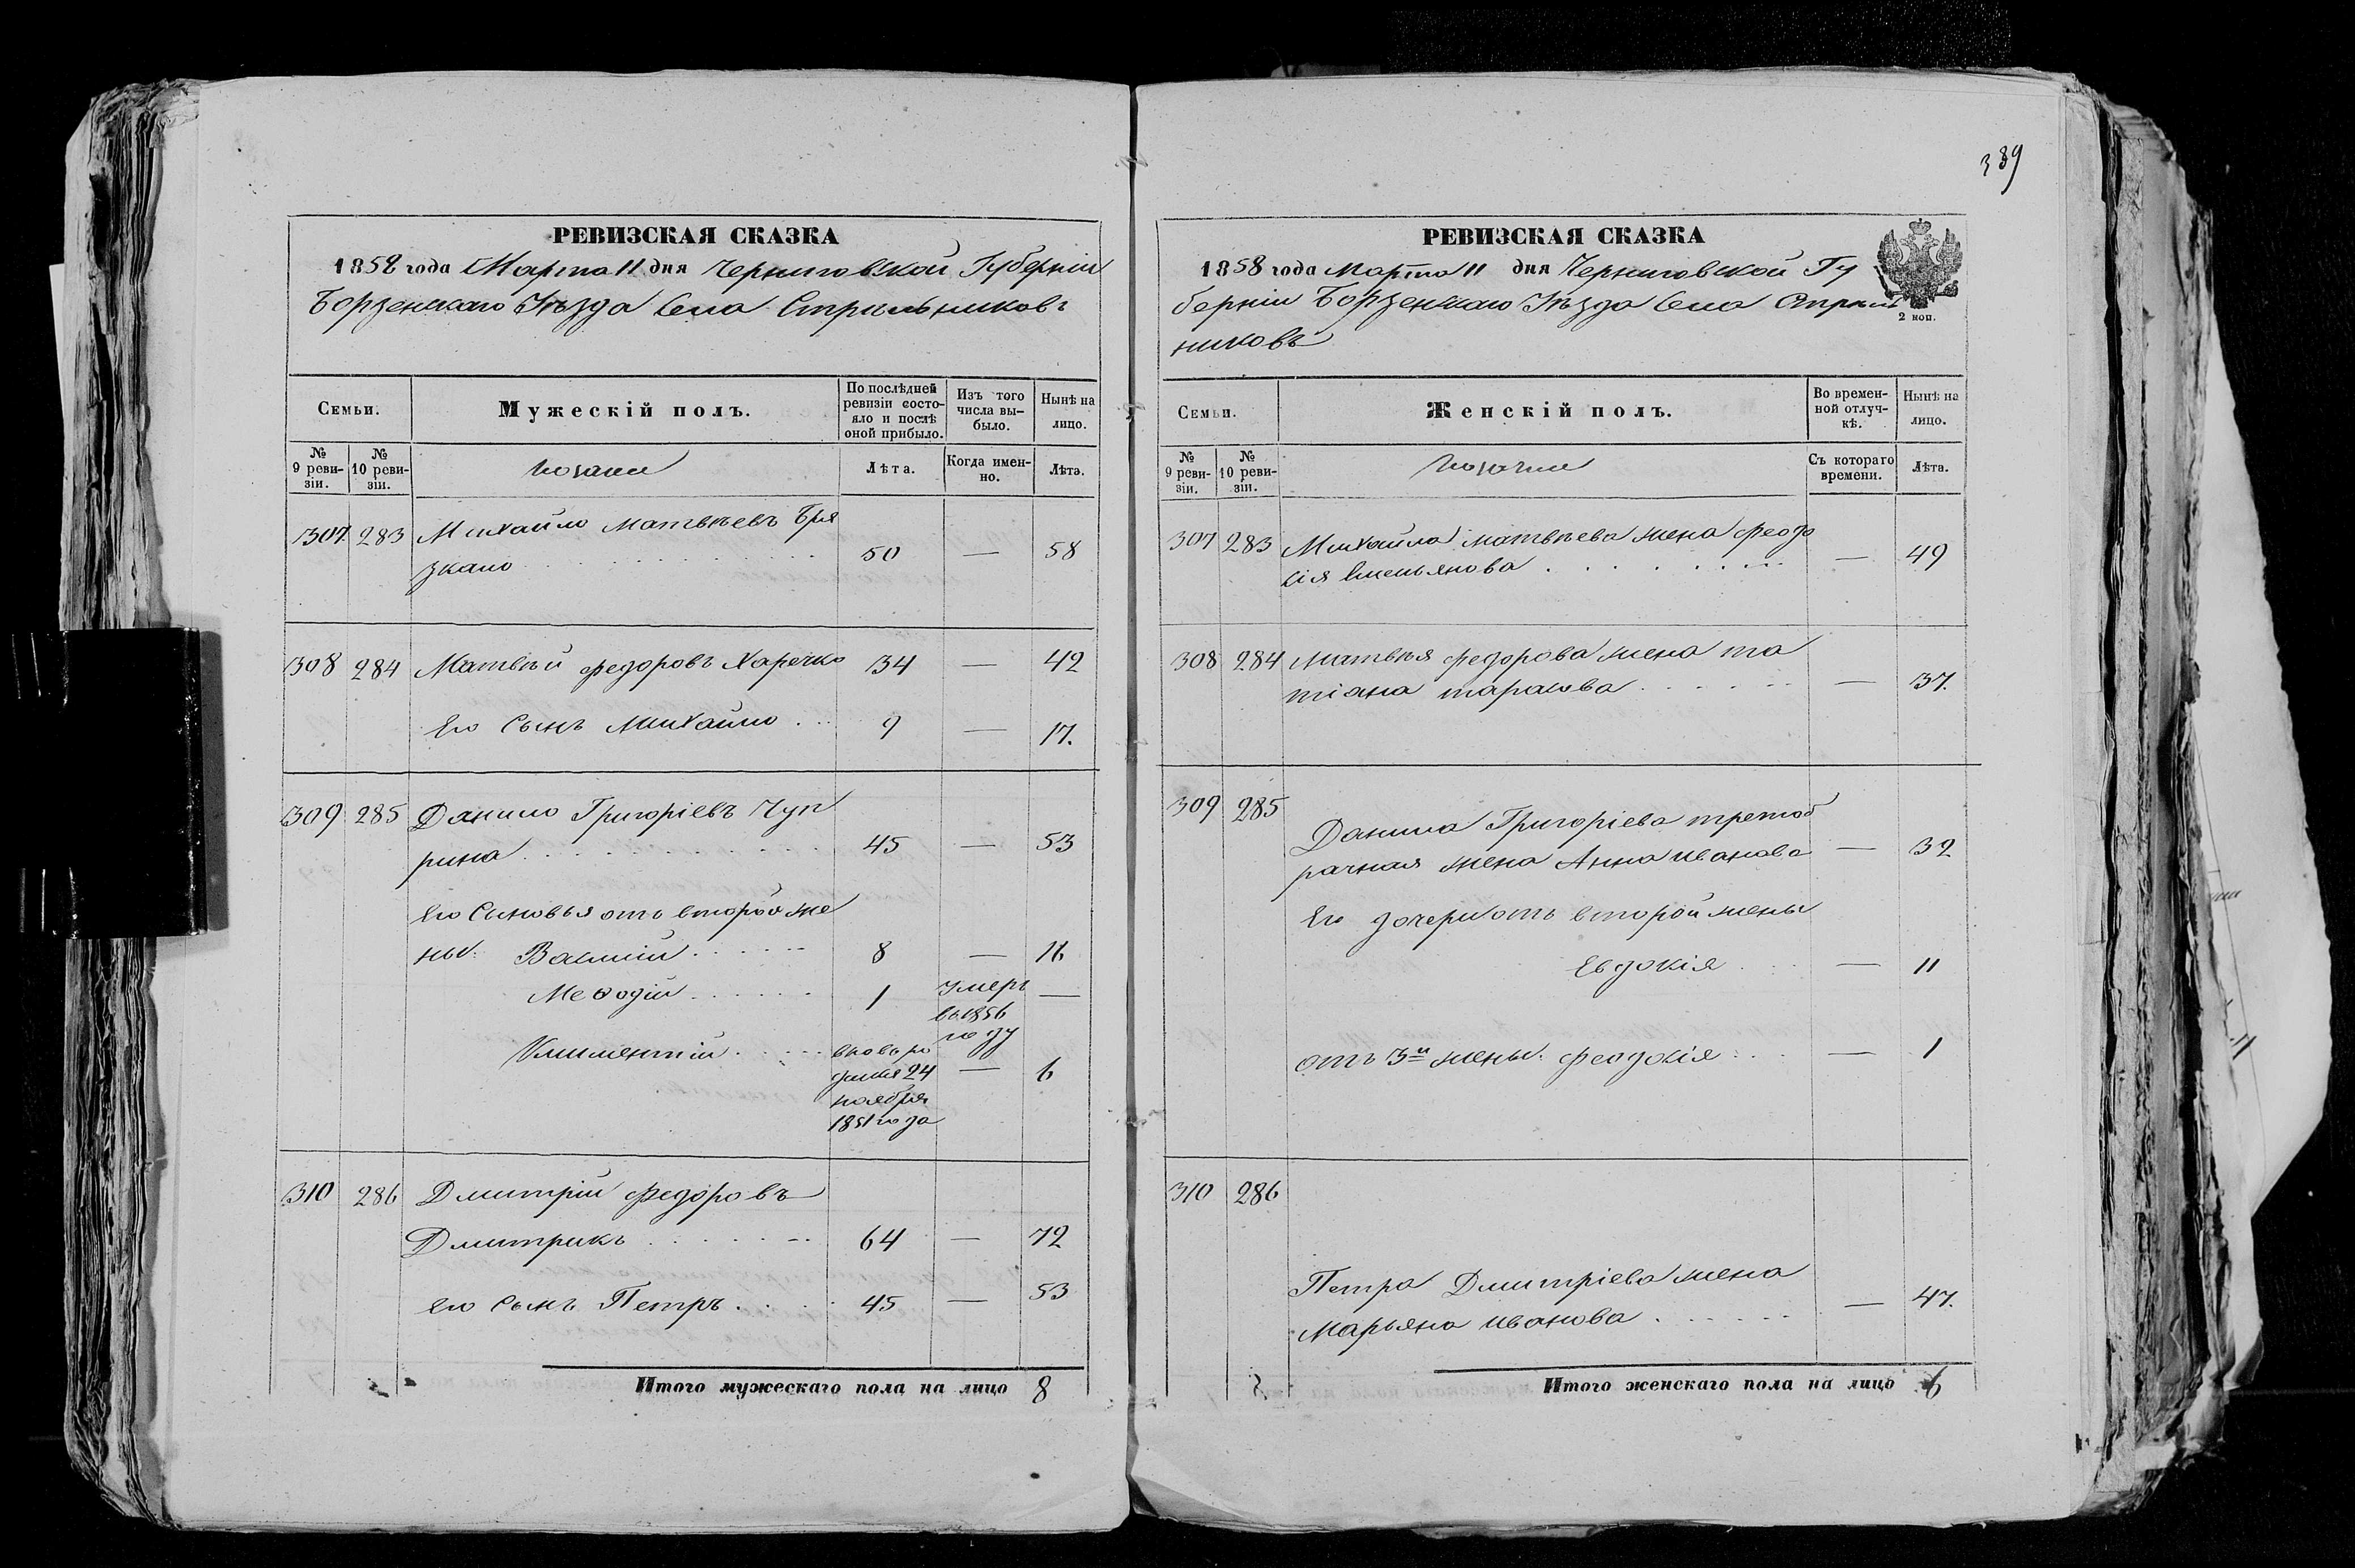 389
РЕВИЗСКАЯ СКАЗКА
1858 года Марта 11 дня Черниговской Губерніи
Борзенскаго Уѣзда Села Стрѣльниковъ
Семьи.
Мужескій полъ.
По послѣдней ревизіи состо-
яло и послѣ оной прибыло.
Изъ того числа вы-
было.
Нынѣ на лицо.
№ 9 реви-
зіи.
№ 10 реви-
зіи.
козаки
Лѣта.
Когда имен-
но.
Лѣта.
307 283 Михайло Матвѣевъ Бря
зкало 50 — 58
308 284 Матвѣй Федоровъ Харечко 34 — 42
Его Сынъ Михайло 9 — 17.
309 285 Данило Григоріевъ Чуп
рина 45 — 53
Его Сыновья отъ второй же
ны: Василій 8 — 16
Меѳодій 1 умеръ —
въ 1856
году
Климентій вновь ро
24 — 6
ноября
1851 года
310 286 Дмитрій Федоровъ
Дмитрикъ 64 — 72
Его Сынъ Петръ 45 — 53
Итого мужескаго пола на лицо 8
РЕВИЗСКАЯ СКАЗКА
1858 года Марта 11 дня Черниговской Гу
берніи Борзенскаго Уѣзда Села Стрѣль
никовъ
2 коп.
Семьи.
Женскій полъ.
Во времен-
ной отлуч-
кѣ.
Нынѣ на лицо.
№ 9 реви-
зіи.
№ 10 реви-
зіи.
Съ котораго времени.
Лѣта.
307 283 Михайла Матвѣева жена Феодо
сія Емельянова — 49
308 284 Матвѣя Федорова жена Та
тіана Тарасова — 37.
309 285
Данила Григоріева третоб
рачная жена Анна Иванова — 32
Его дочери отъ второй жены
Евдокія — 11
отъ 3й жены: Феодосія — 1
310 286
Петра Дмитріева жена
Марьяна Иванова — 47.
Итого женскаго пола на лицо 6